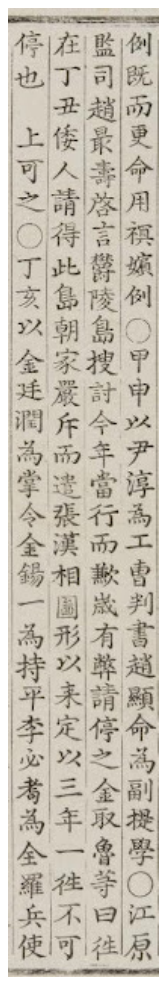 例既而更命用禩嬪例○甲申以尹淳為工曹判書趙顯命為副提學○江原
監司趙最壽啓言欝陵島搜討今年當行而歉歲有弊請停之金取魯等曰徃
在丁丑倭人請得此島朝家嚴斥而遣張漢相圖形以来定以三年一徃不可
停也　上可之○丁亥以金廷潤為掌令金錫一為持平李必耉為全羅兵使